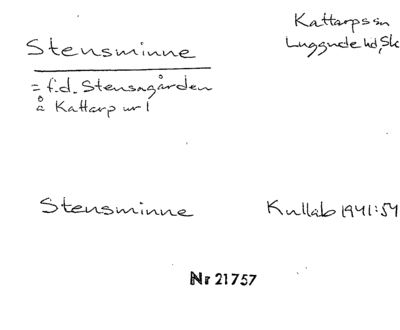 Stensminne
Kattarps sn
Luggude hd, Sk
= f.d. Stensagården
å Kattarp nr 1
Stensminne
Kullab 1941:54
Nr 21757